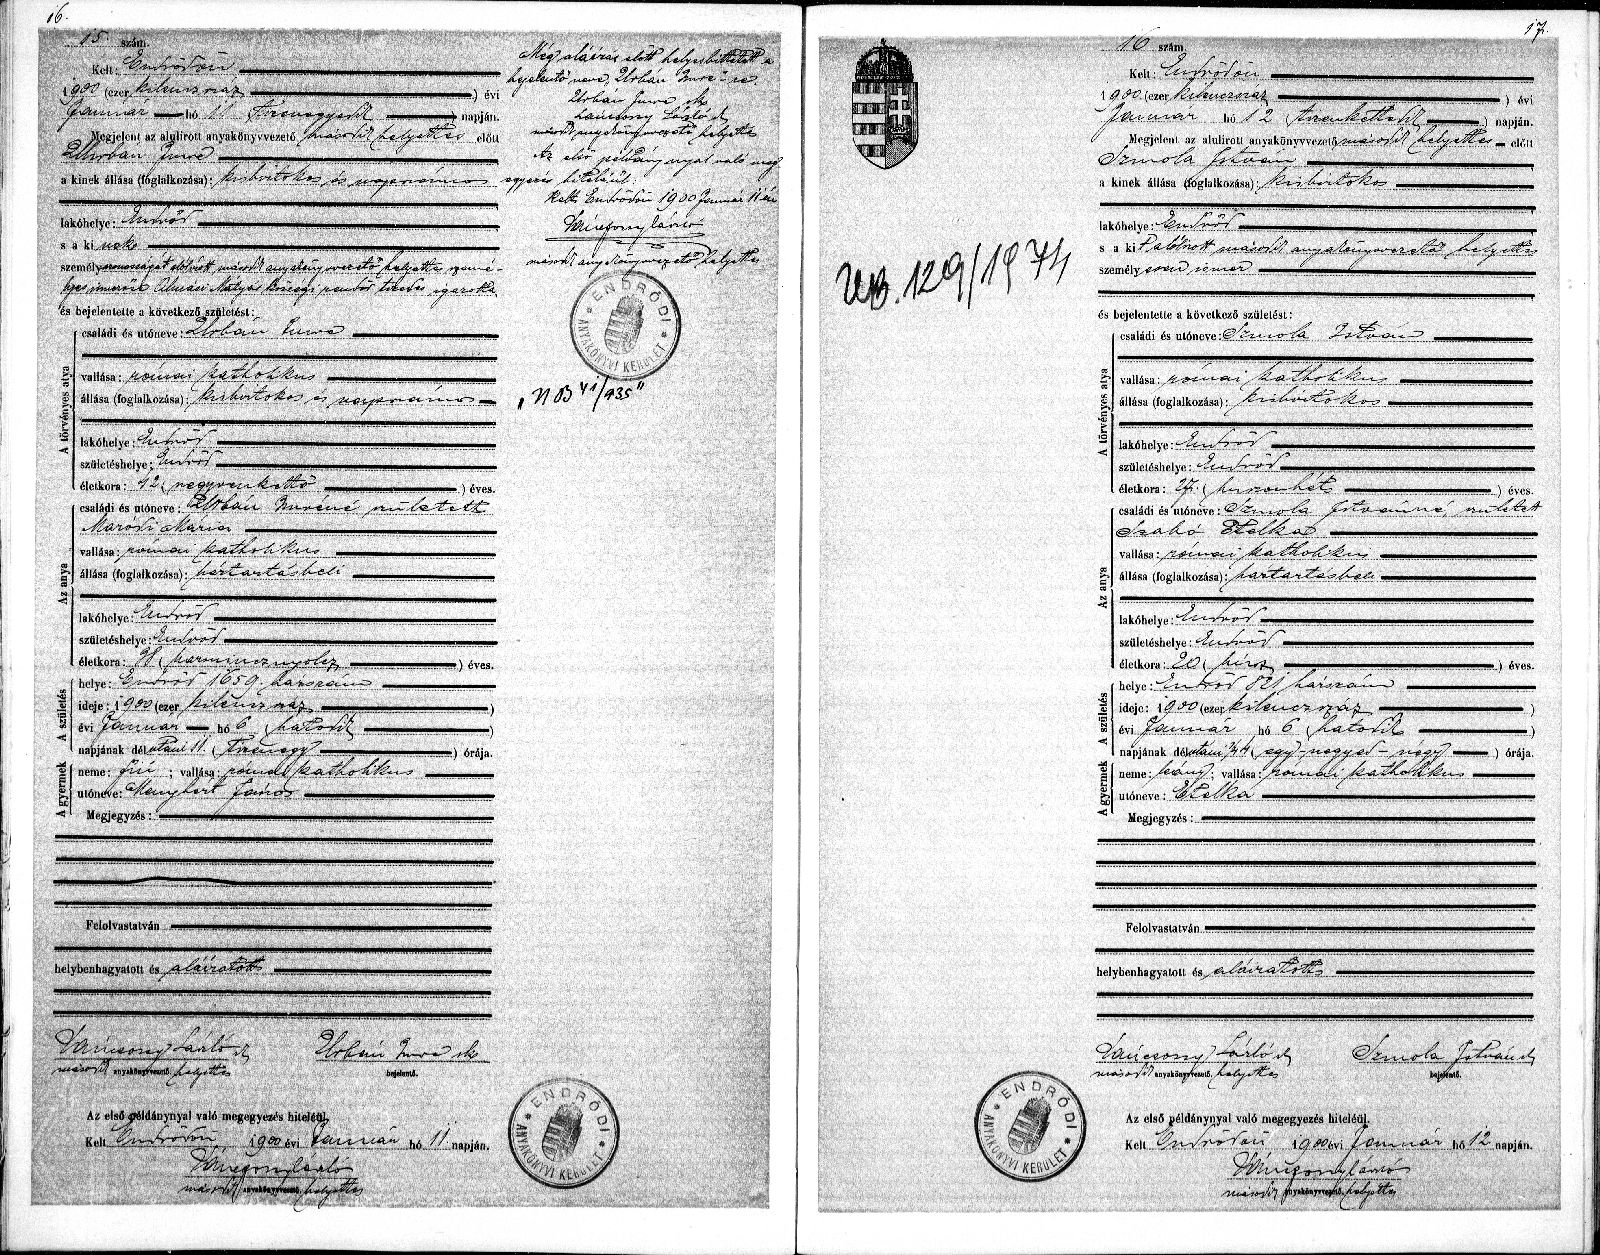 16.
15 szám.
Kelt: Endrődön
1900 (ezer kilenczszáz) évi
Január hó 11 (tizenegyedik) napján.
Megjelent az alulirott anyakönyvvezető második helyettes előtt
Urbán Imre
a kinek állása (foglalkozása): kisbirtokos és napszámos
lakóhelye: Endrőd
s a ki nek
személyazonosságát előttünk második anyakönyvvezető helyettes
Almási Mátyás községi rendőr
és bejelentette a következő születést:
A törvényes atya
családi és utóneve: Urbán Imre
vallása: római katholikus
állása (foglalkozása): kisbirtokos és napszámos
lakóhelye: Endrőd
születéshelye: Endrőd
életkora: 42 (negyvenkettő) éves.
Az anya
családi és utóneve: Urbán Imréné született
Maródi Mária
vallása: római katholikus
állása (foglalkozása): háztartásbeli
lakóhelye: Endrőd
születéshelye: Endrőd
életkora: 38 (harmincznyolcz) éves.
A születés
helye: Endrőd 1659 házszám
ideje: 1900 (ezer kilenczszáz)
évi Január hó 6 (hatodik)
napjának délutáni 11 (tizenegy) órája.
A gyermek
neme: fiú; vallása: római katholikus
utóneve: Menyhért János
Megjegyzés:
Felolvastatván
helybenhagyatott és aláíratott
László sk
Urbán Imre sk
második anyakönyvvezető helyettes
bejelentő.
Az első példánynyal való megegyezés hiteléül.
Kelt Endrődön 1900 évi Január hó 11 napján.
László
második anyakönyvvezető helyettes
Még aláírás előtt helyesbíttetett a
bejelentő neve „Urbán Imre"-re.
Urbán Imre sk
László sk
második anyakönyvvezető helyettes
Az első példánynyal való meg
egyezés hiteléül.
Kelt Endrődön 1900 Január 11én
László
második anyakönyvvezető helyettes
ENDRŐDI ANYAKÖNYVI KERÜLET
„UB 41/935"
ENDRŐDI ANYAKÖNYVI KERÜLET
17.
16 szám.
Kelt: Endrődön
1900 (ezer kilenczszáz) évi
Január hó 12 (tizenkettedik) napján.
Megjelent az alulirott anyakönyvvezető második helyettes előtt
Szmola István
a kinek állása (foglalkozása): kisbirtokos
lakóhelye: Endrőd
s a ki t alólírott második anyakönyvvezető helyettes
személyesen ismer
és bejelentette a következő születést:
A törvényes atya
családi és utóneve: Szmola István
vallása: római katholikus
állása (foglalkozása): kisbirtokos
lakóhelye: Endrőd
születéshelye: Endrőd
életkora: 27. (huszonhét) éves.
Az anya
családi és utóneve: Szmola Istvánné, született
Szabó Etelka
vallása: római katholikus
állása (foglalkozása): háztartásbeli
lakóhelye: Endrőd
születéshelye: Endrőd
életkora: 20 (húsz) éves.
A születés
helye: Endrőd házszám
ideje: 1900 (ezer kilenczszáz)
évi Január hó 6 (hatodik)
napjának délutáni 1/4 4 (egy negyed négy) órája.
A gyermek
neme: leány; vallása: római katholikus
utóneve: Etelka
Megjegyzés:
Felolvastatván
helybenhagyatott és aláíratott
László sk
Szmola István sk
második anyakönyvvezető helyettes
bejelentő.
Az első példánynyal való megegyezés hiteléül.
Kelt Endrődön 1900 évi Január hó 12 napján.
László
második anyakönyvvezető helyettes
UB. 129/1974
ENDRŐDI ANYAKÖNYVI KERÜLET